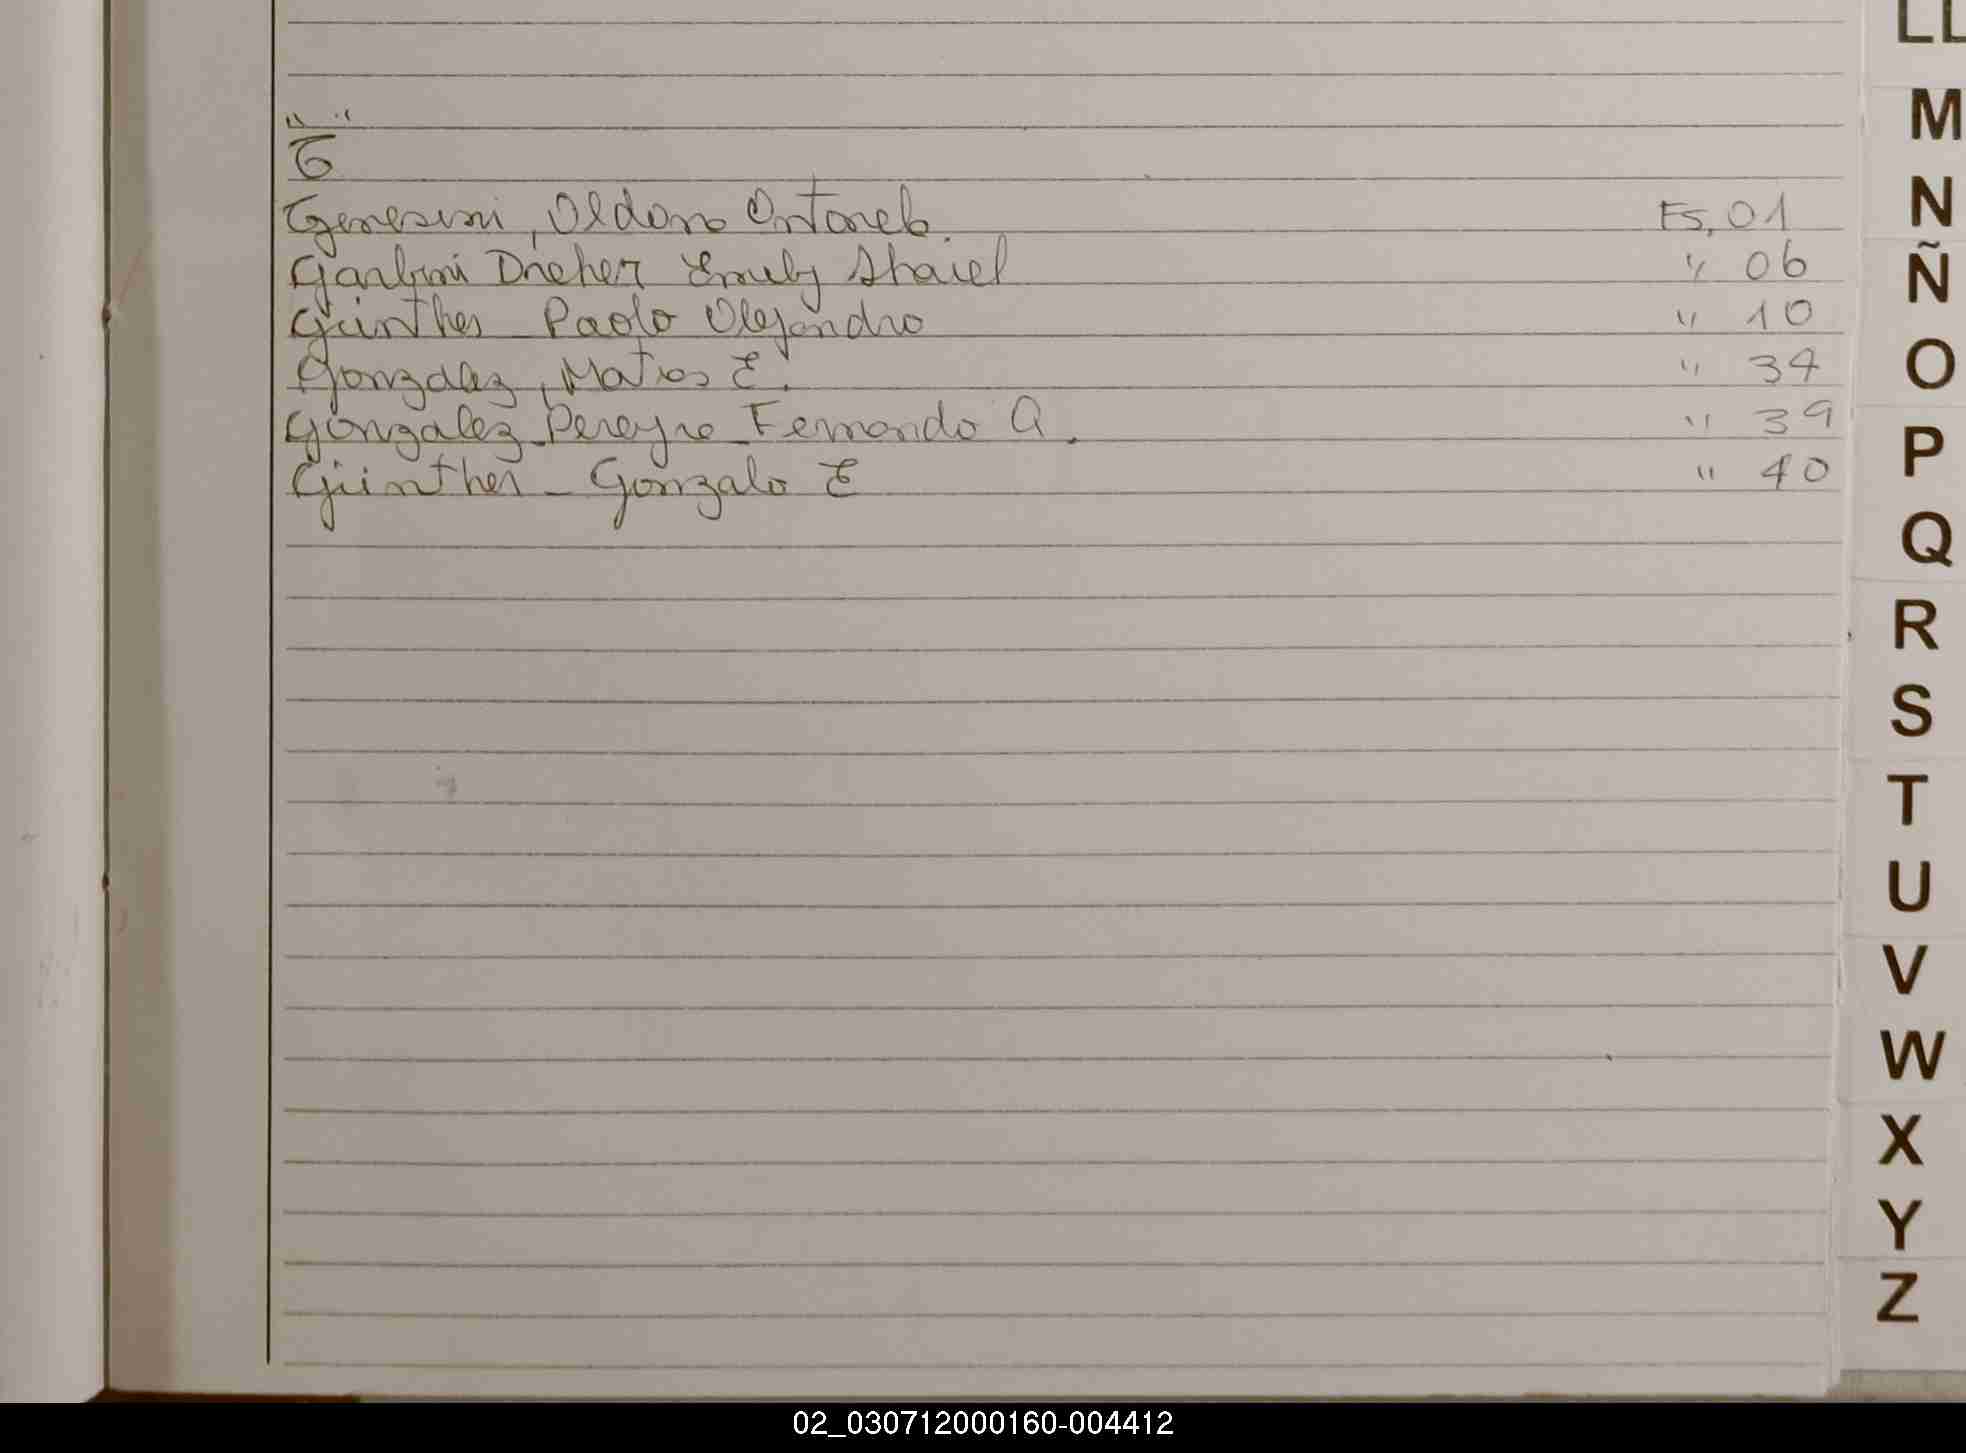 LL
M
N
Ñ
O
P
Q
R
S
T
U
V
W
X
Y
Z
" "
G
Genesini, Aldana Antonela. Fs. 01
Garbini Dreher Emily Shaiel " 06
Günther Paolo Alejandro " 10
Gonzalez, Matias E. " 34
Gonzalez Pereyra Fernando A. " 39
Günther - Gonzalo E " 40
02_030712000160-004412